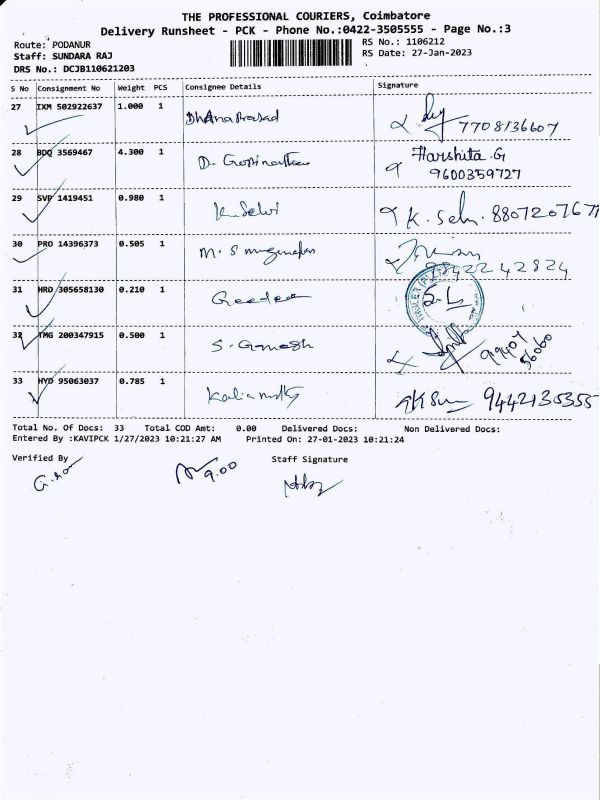 THE PROFESSIONAL COURIERS, Coimbatore
Delivery Runsheet - PCK - Phone No.:0422-3505555 - Page No.:3
Route: PODANUR
RS No.: 1106212
Staff: SUNDARA RAJ
RS Date: 27-Jan-2023
DRS No.: DCJB110621203
S No Consignment No Weight PCS Consignee Details Signature
27 IXM 502922637 1.000 1 Dhana Prasad 7708136607
28 BDQ 3569467 4.300 1 D. Gopinathan Harshita.G
9600359727
29 SVP 1419451 0.980 1 K. Selvi K. Selvi. 880720767
30 PRD 14396373 0.505 1 M. S 9842242824
31 HRD 305658130 0.210 1 Geedee
32 TMG 200347915 0.500 1 S. Ganesh 99407
56060
33 HYD 95063037 0.785 1 9442135355
Total No. Of Docs: 33 Total COD Amt: 0.00 Delivered Docs: Non Delivered Docs:
Entered By :KAVIPCK 1/27/2023 10:21:27 AM Printed On: 27-01-2023 10:21:24
Verified By Staff Signature
9.00